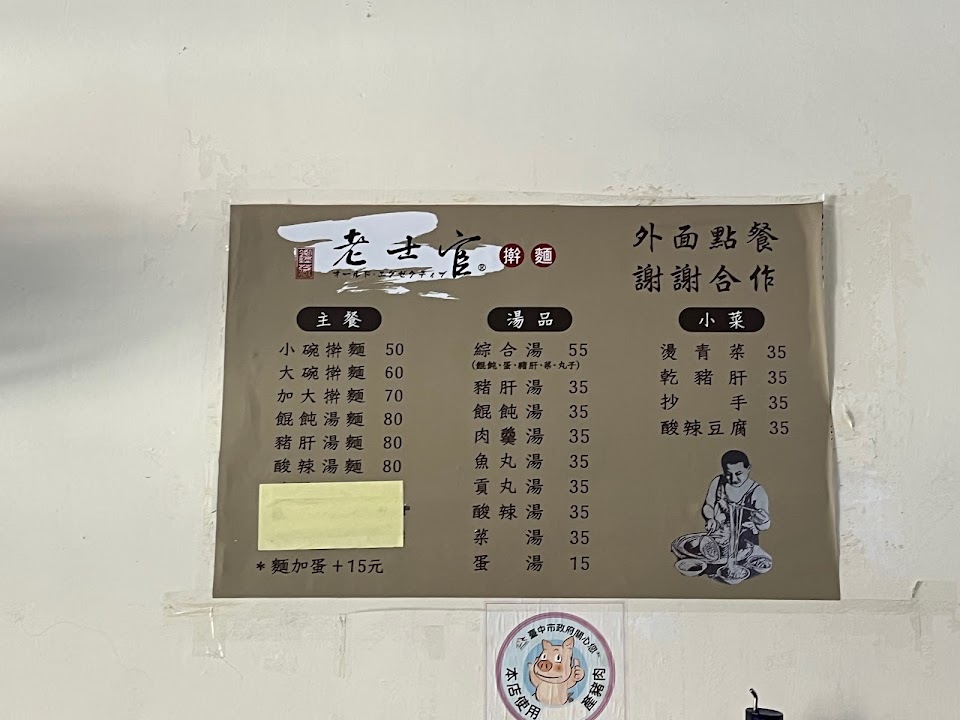 老士官® 擀麵
オールド・エグゼクティブ
外面點餐
謝謝合作
主餐
小碗擀麵 50
大碗擀麵 60
加大擀麵 70
餛飩湯麵 80
豬肝湯麵 80
酸辣湯麵 80
*麵加蛋+15元
湯品
綜合湯 55
(餛飩、蛋、豬肝、菜、丸子)
豬肝湯 35
餛飩湯 35
肉羹湯 35
魚丸湯 35
貢丸湯 35
酸辣湯 35
菜湯 35
蛋湯 15
小菜
燙青菜 35
乾豬肝 35
抄手 35
酸辣豆腐 35
臺中市政府關心您
本店使用
產豬肉